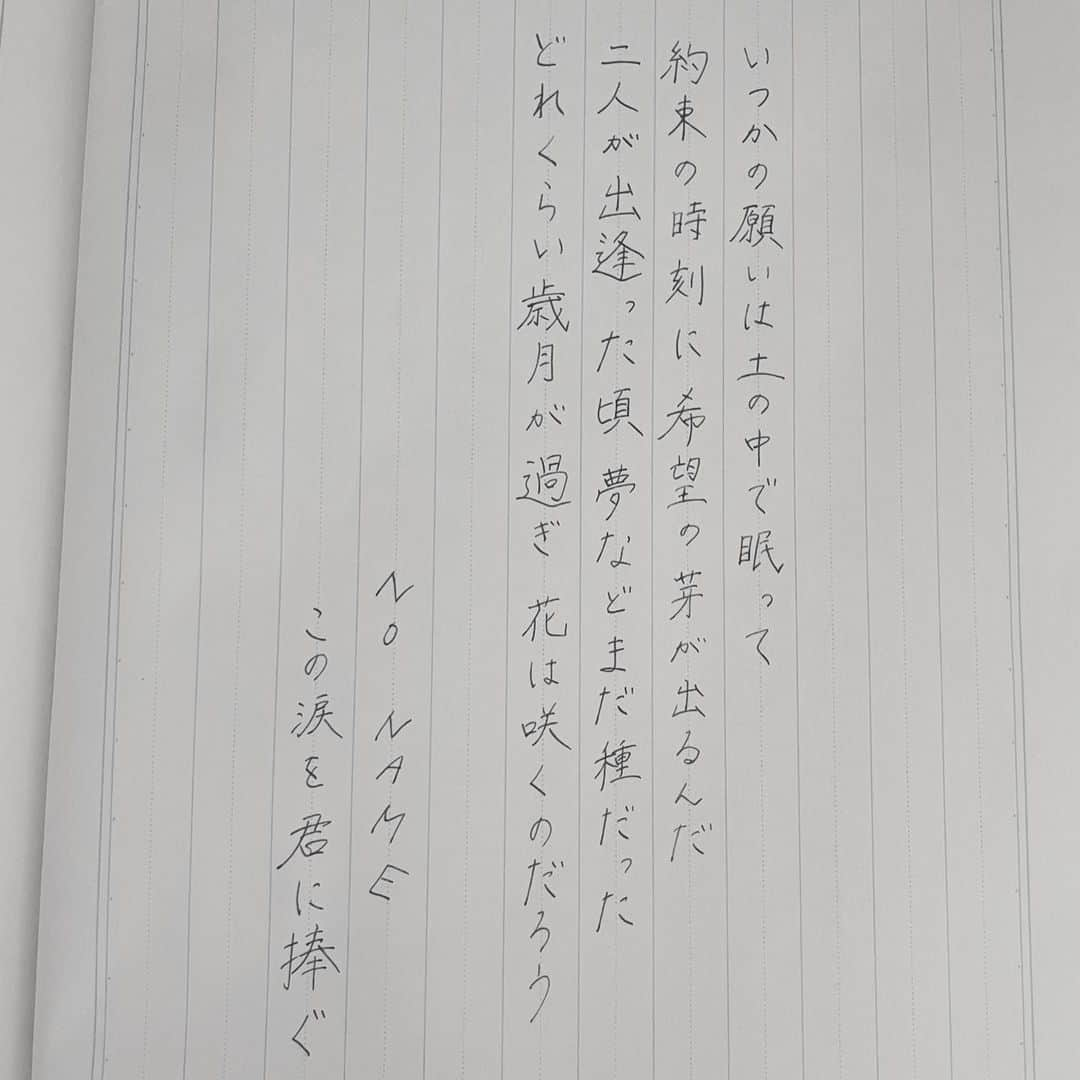 いつかの願いは土の中で眠って
約束の時刻に希望の芽が出るんだ
二人が出逢った頃 夢などまだ種だった
どれくらい歳月が過ぎ 花は咲くのだろう
NO NAME
この涙を君に捧ぐ